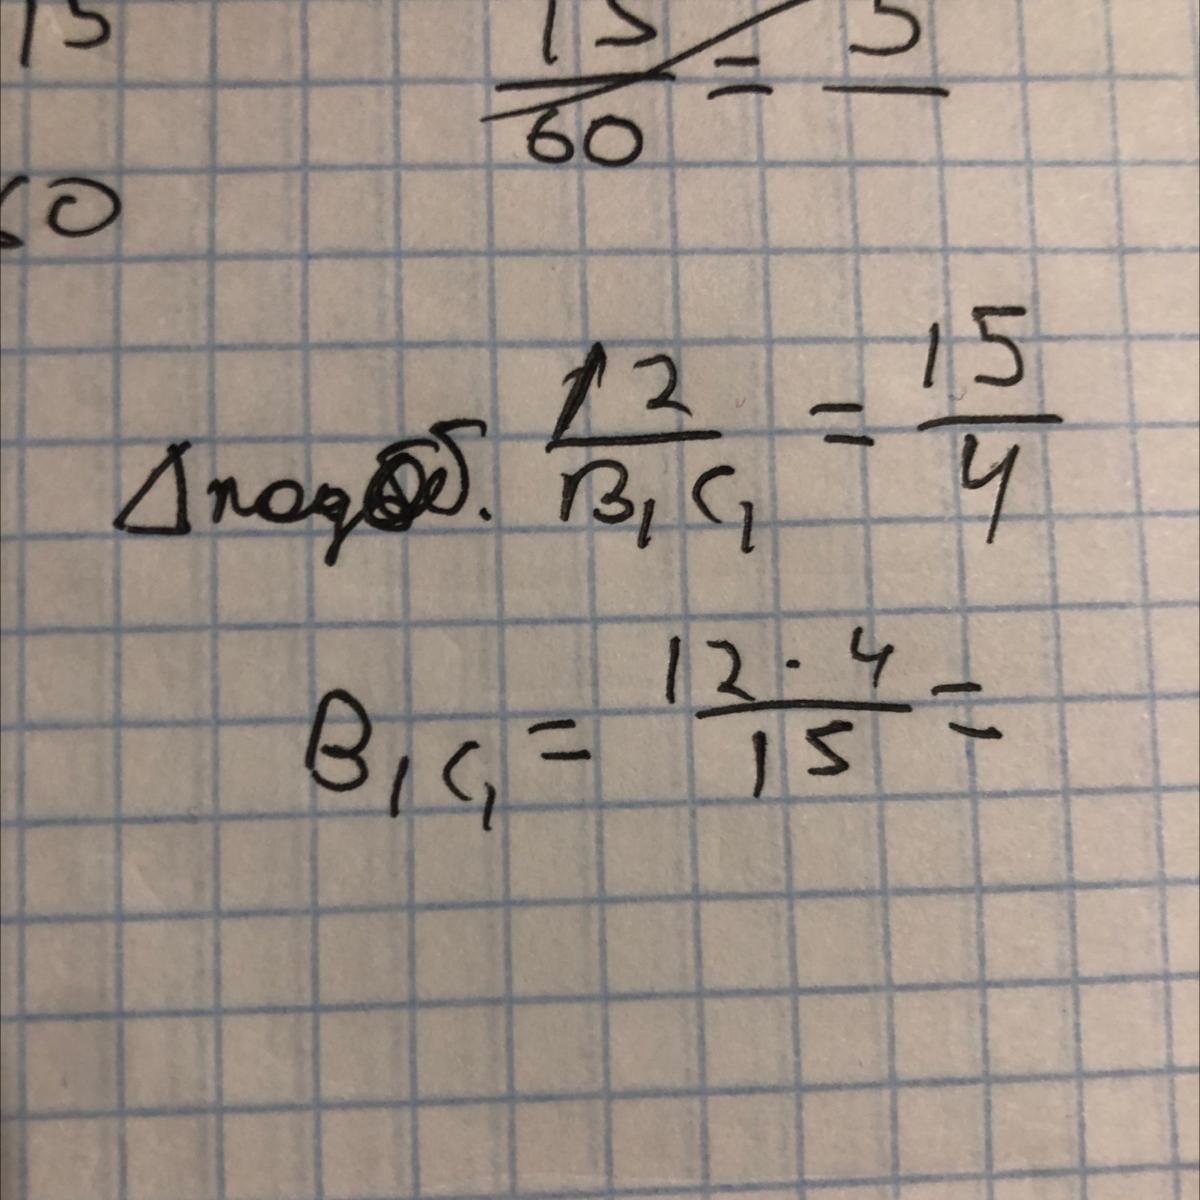 15
15/60 = 5
60
Δ подоб. 12/B₁C₁ = 15/4
B₁C₁ = 12 · 4/15 =